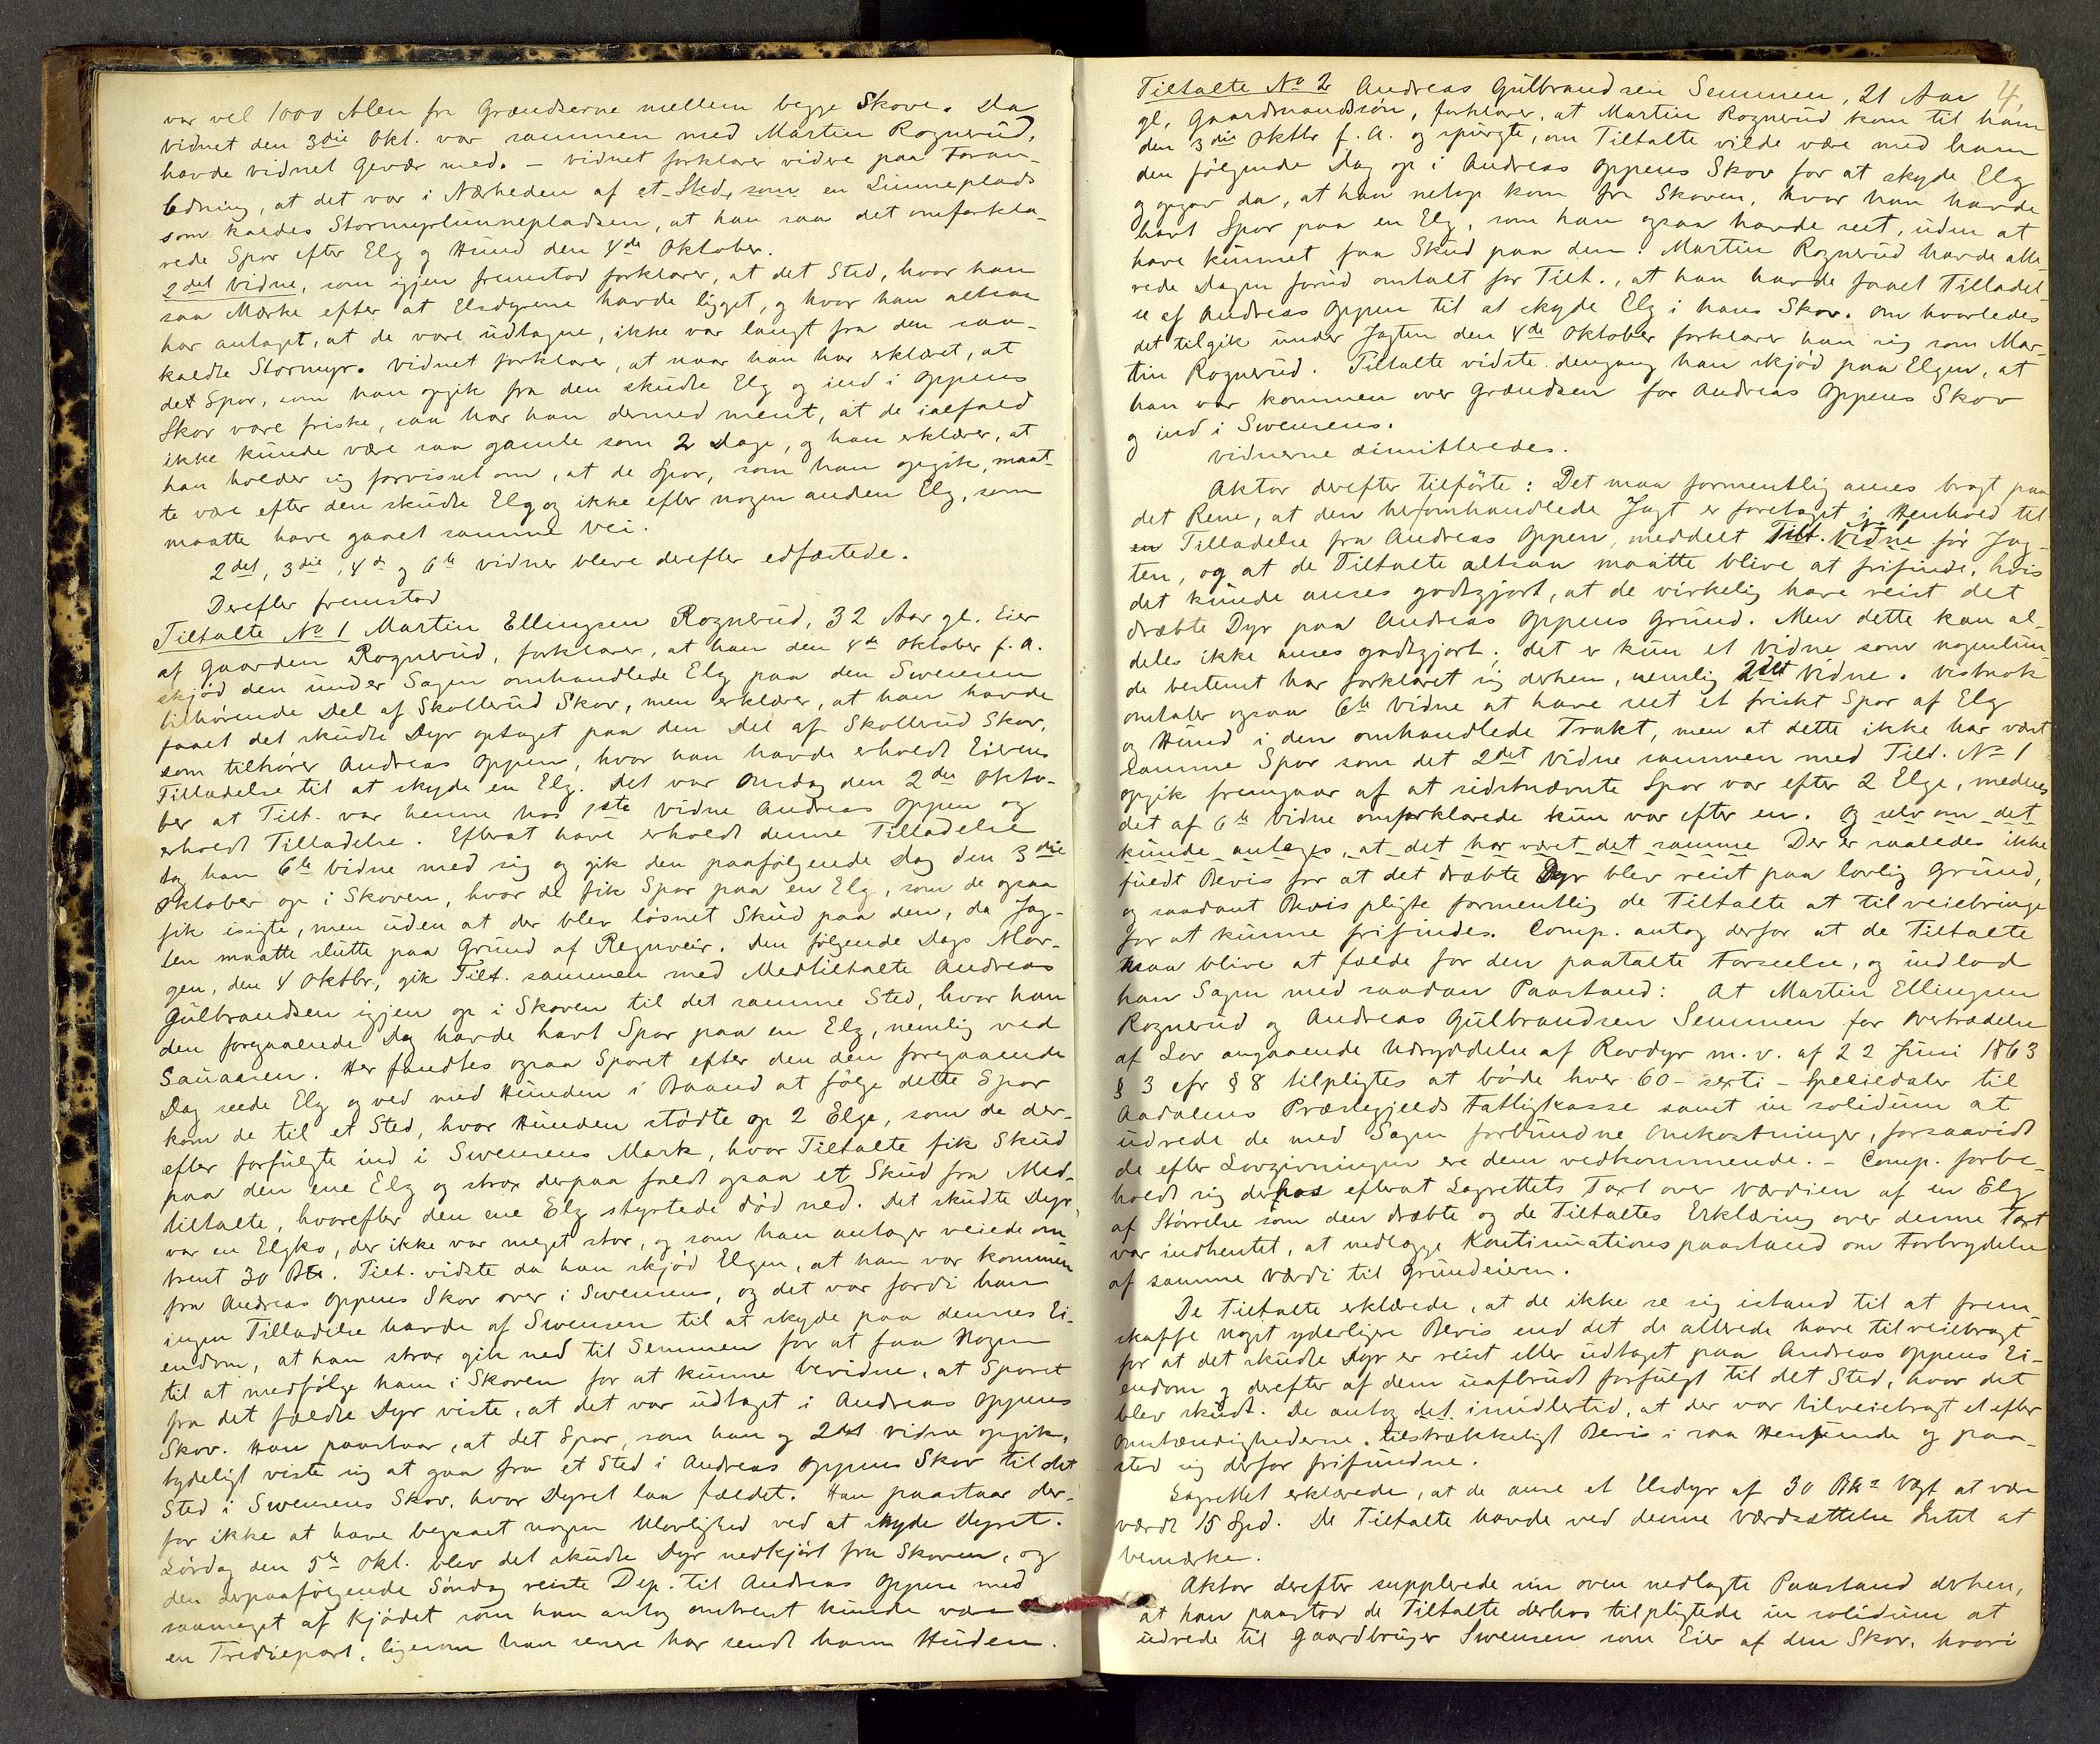 var vel 1000 Alen fra Grændserne mellem begge Skove. Da
vidnet den 3die Okt. var sammen med Martin Rognerud,
havde vidnet Gevær med. – Vidnet forklarer videre paa Foran-
ledning, at det var i Nærheden af et Sted, som en Lunneplads
som kaldes Stormyrlunnepladsen, at han saa det omforkla-
rede Spor efter Elg og Hund den 4de Oktober.
2det Vidne, som igjen fremstod forklarer, at det Sted, hvor han
saa Mærke efter at Elsdyrene havde ligget, og hvor han altsaa
har antaget, at de vare udtagne, ikke var langt fra den saa-
kaldte Stormyr. Vidnet forklarer, at naar han har erklæret, at
det Spor, som han opgik fra den skudte Elg og ind i Oppens
Skov vare friske, saa har han dermed ment, at de ialfald
ikke kunde være saa gamle som 2 Dage, og han erklærer, at
han holder sig forvisset om, at de Spor, som han opgik, maat-
te være efter den skudte Elg og ikke efter nogen anden Elg, som
maatte have gaaet samme Vei.
2det, 3die, 4de og 6te Vidner bleve derefter edfæstede.
Derefter fremstod
Tiltalte No 1 Martin Ellingsen Rognerud, 32 Aar gl. Eier
af Gaarden Rognerud, forklarer, at han den 4de Oktober f. A.
skjød den under Sagen omhandlede Elg paa den Swensen
tilhørende Del af Skollerud Skov, men erklærer, at han havde
faaet det skudte Dyr optaget paa den Del af Skollerud Skov,
som tilhører Andreas Oppen, hvor han havde erholdt Eierens
Tilladelse til at skyde en Elg. Det var Onsdag den 2den Okto-
ber at Tilt. var henne hos 1ste Vidne Andreas Oppen og
erholdt Tilladelse. Efterat have erholdt denne Tilladelse
tog han 6te Vidne med sig og gik den paafølgende Dag den 3die
Oktober op i Skoven, hvor de fik Spor paa en Elg, som de ogsaa
fik isigte, men uden at der blev løsnet Skud paa den, da Jag-
ten maatte slutte paa Grund af Regnveir. Den følgende Dags Mor-
gen, den 4 Oktbr, gik Tilt. sammen med Medtiltalte Andreas
Gulbrandsen igjen op i Skoven til det samme Sted, hvor han
den foregaaende Dag havde havt Spor paa en Elg, nemlig ved
Sauaasen. Her fandtes ogsaa Sporet efter den den foregaaende
Dag seede Elg og ved med Hunden i Baand at følge dette Spor
kom de til et Sted, hvor Hunden stødte op 2 Elge, som de der-
efter forfulgte ind i Swensens Mark, hvor Tiltalte fik Skud
paa den ene Elg og strax derpaa faldt ogsaa et Skud fra Med-
tiltalte, hvorefter den ene Elg styrtede død ned. Det skudte Dyr
var en Elgko, der ikke var meget stor, og som han antager veiede om-
trent 30 B. Tilt. vidste da han skjød Elgen, at han var kommen
fra Andreas Oppens Skov over i Swensens, og det var fordi han
ingen Tilladelse havde af Swensen til at skyde paa dennes Ei-
endom, at han strax gik ned til Semmen for at faa Nogen
til at medfølge ham i Skoven for at kunne bevidne, at Sporet
fra det fældte Dyr viste, at det var udtaget i Andreas Oppens
Skov. Han paastaar, at det Spor, som han og 2det Vidne opgik,
tydeligt viste sig at gaa fra et Sted i Andreas Oppens Skov til det
Sted i Swensens Skov, hvor Dyret laa fældet. Han paastaar der-
for ikke at have begaaet nogen Ulovlighed ved at skyde Dyret.
Lørdag den 5te Okt. blev det skudte Dyr nedkjørt fra Skoven, og
den derpaafølgende Søndag reiste Dep. til Andreas Oppen med
saameget af Kjødet som han antog omtrent kunde være
en Trediepart, ligesom han senere har sendt ham Huden.
4
Tiltalte No 2 Andreas Gulbrandsen Semmen, 21 Aar
gl. Gaardmandssøn, forklarer, at Martin Rognerud kom til ham
den 3die Oktbr f. A. og spurgte, om Tiltalte vilde være med ham
den følgende Dag op i Andreas Oppens Skov for at skyde Elg
og opgav da, at han netop kom fra Skoven, hvor han havde
havt Spor paa en Elg, som han ogsaa havde seet, uden at
have kunnet faa Skud paa den. Martin Rognerud havde alle-
rede Dagen forud omtalt for Tilt., at han havde faaet Tilladel-
se af Andreas Oppen til at skyde Elg i hans Skov. Om hvorledes
det tilgik under Jagten den 4de Oktober forklarer han sig som Mar-
tin Rognerud. Tiltalte vidste dengang han skjød paa Elgen, at
han var kommen over Grændsen for Andreas Oppens Skov
og ind i Swensens.
Vidnerne dimitteredes.
Aktor derefter tilførte: Det maa formentlig anses bragt paa
det Rene, at den heromhandlede Jagt er foretaget i Henhold til
en Tilladelse fra Andreas Oppen, meddelt Tilt. No 1 før Jag-
ten, og at de Tiltalte altsaa maatte blive at frifinde, hvis
det kunde anses godtgjort, at de virkelig have reist det
dræbte Dyr paa Andreas Oppens Grund. Men dette kan al-
deles ikke anses godtgjort; det er kun et Vidne som nogenlun-
de bestemt har forklaret sig derhen, nemlig 2det Vidne. Vistnok
omtaler ogsaa 6te Vidne at have seet et friskt Spor af Elg
og Hund i den omhandlede Trakt, men at dette ikke har været
samme Spor som det 2det Vidne sammen med Tilt. No 1
opgik fremgaar af at sidstnævnte Spor var efter 2 Elge, medens
det af 6te Vidne omforklarede kun var efter en. Og selv om det
kunde antages, at det har været det samme Der er saaledes ikke
ført Bevis for at det dræbte Dyr blev reist paa lovlig Grund,
og saadant Bevis pligte formentlig de Tiltalte at tilveiebringe
for at kunne frifindes. Comp. antog derfor at de Tiltalte
maa blive at fælde for den paatalte Forseelse, og indlod
han Sagen med saadan Paastand: At Martin Ellingsen
Rognerud og Andreas Gulbrandsen Semmen for Overtrædelse
af Lov angaaende Udryddelse af Rovdyr m. v. af 22 Juni 1863
§ 3 cfr § 8 tilpligtes at bøde hver 60 – sexti – Speciedaler til
Aadalens Præstegjelds Fattigkasse samt in solidum at
udrede de med Sagen forbundne Omkostninger, forsaavidt
de efter Lovgivningen ere dem vedkommende. – Comp. forbe-
holdt sig derhos efterat Lagrettets Taxt over Værdien af en Elg
af Størrelse som den dræbte og de Tiltaltes Erklæring over denne Taxt
var indhentet, at nedlægge Kontinuationspaastand om Forbrydelse
af samme Værdi til Grundeieren.
De Tiltalte erklærede, at de ikke se sig istand til at frem-
skaffe noget yderligere Bevis end det de allerede have tilveiebragt
for at det skudte Dyr er reist eller udtaget paa Andreas Oppens Ei-
endom og derefter af dem uafbrudt forfulgt til det Sted, hvor det
blev skudt. De antog det imidlertid, at der var tilveiebragt et efter
Omstændighederne tilstrækkeligt Bevis i saa Henseende og paa-
stod sig derfor frifundne.
Lagrettet erklærede, at de anse et Elsdyr af 30 Vægt at være
værdt 15 Spd. De Tiltalte havde ved denne Værdsættelse Intet at
bemærke.
Aktor derefter supplerede sin oven nedlagte Paastand derhen,
at han paastod de Tiltalte derhos tilpligtede in solidum at
udrede til Gaardbruger Swensen som Eier af den Skov, hvori